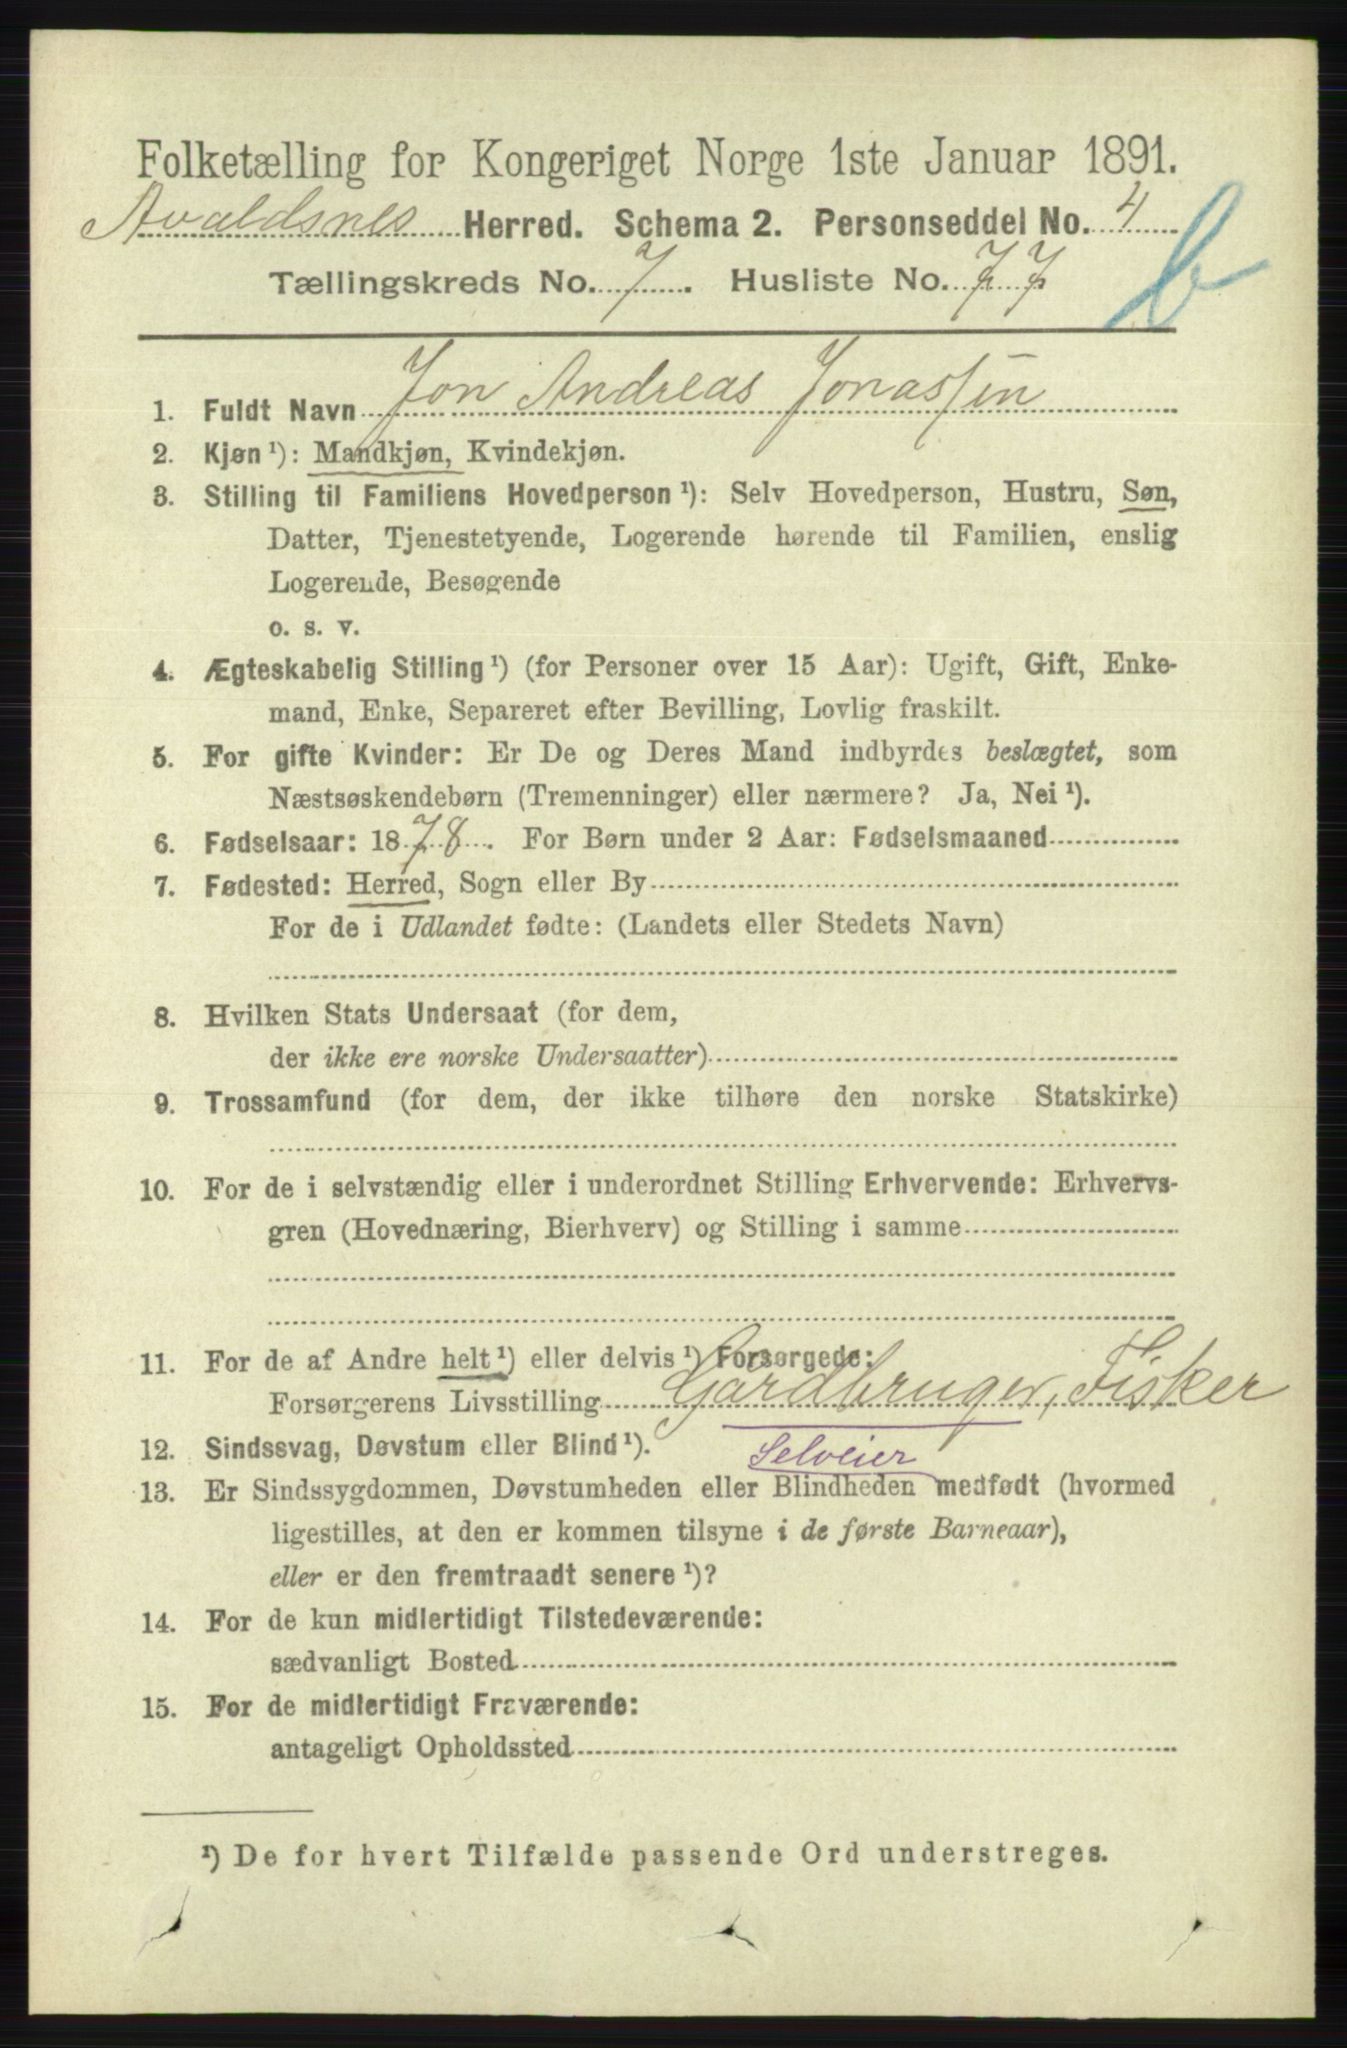 Folketælling for Kongeriget Norge 1ste Januar 1891.
Avaldsnes Herred. Schema 2. Personseddel No. 4
b
Tællingskreds No. 7. Husliste No. 77
1. Fuldt Navn Jon Andreas Jonassen
2. Kjøn ¹): Mandkjøn, Kvindekjøn.
3. Stilling til Familiens Hovedperson ¹): Selv Hovedperson, Hustru, Søn,
Datter, Tjenestetyende, Logerende hørende til Familien, enslig
Logerende, Besøgende
o. s. v.
4. Ægteskabelig Stilling ¹) (for Personer over 15 Aar): Ugift, Gift, Enke-
mand, Enke, Separeret efter Bevilling, Lovlig fraskilt.
5. For gifte Kvinder: Er De og Deres Mand indbyrdes beslægtet, som
Næstsøskendebørn (Tremenninger) eller nærmere? Ja, Nei ¹).
6. Fødselsaar: 1878. For Børn under 2 Aar: Fødselsmaaned
7. Fødested: Herred, Sogn eller By
For de i Udlandet fødte: (Landets eller Stedets Navn)
8. Hvilken Stats Undersaat (for dem,
der ikke ere norske Undersaatter)
9. Trossamfund (for dem, der ikke tilhøre den norske Statskirke)
10. For de i selvstændig eller i underordnet Stilling Erhvervende: Erhvervs-
gren (Hovednæring, Bierhverv) og Stilling i samme
11. For de af Andre helt ¹) eller delvis ¹) Forsørgede:
Forsørgerens Livsstilling Gårdbruger, Fisker
12. Sindssvag, Døvstum eller Blind ¹). Selveier
13. Er Sindssygdommen, Døvstumheden eller Blindheden medfødt (hvormed
ligestilles, at den er kommen tilsyne i de første Barneaar),
eller er den fremtraadt senere ¹)?
14. For de kun midlertidigt Tilstedeværende:
sædvanligt Bosted
15. For de midlertidigt Fraværende:
antageligt Opholdssted
¹) De for hvert Tilfælde passende Ord understreges.